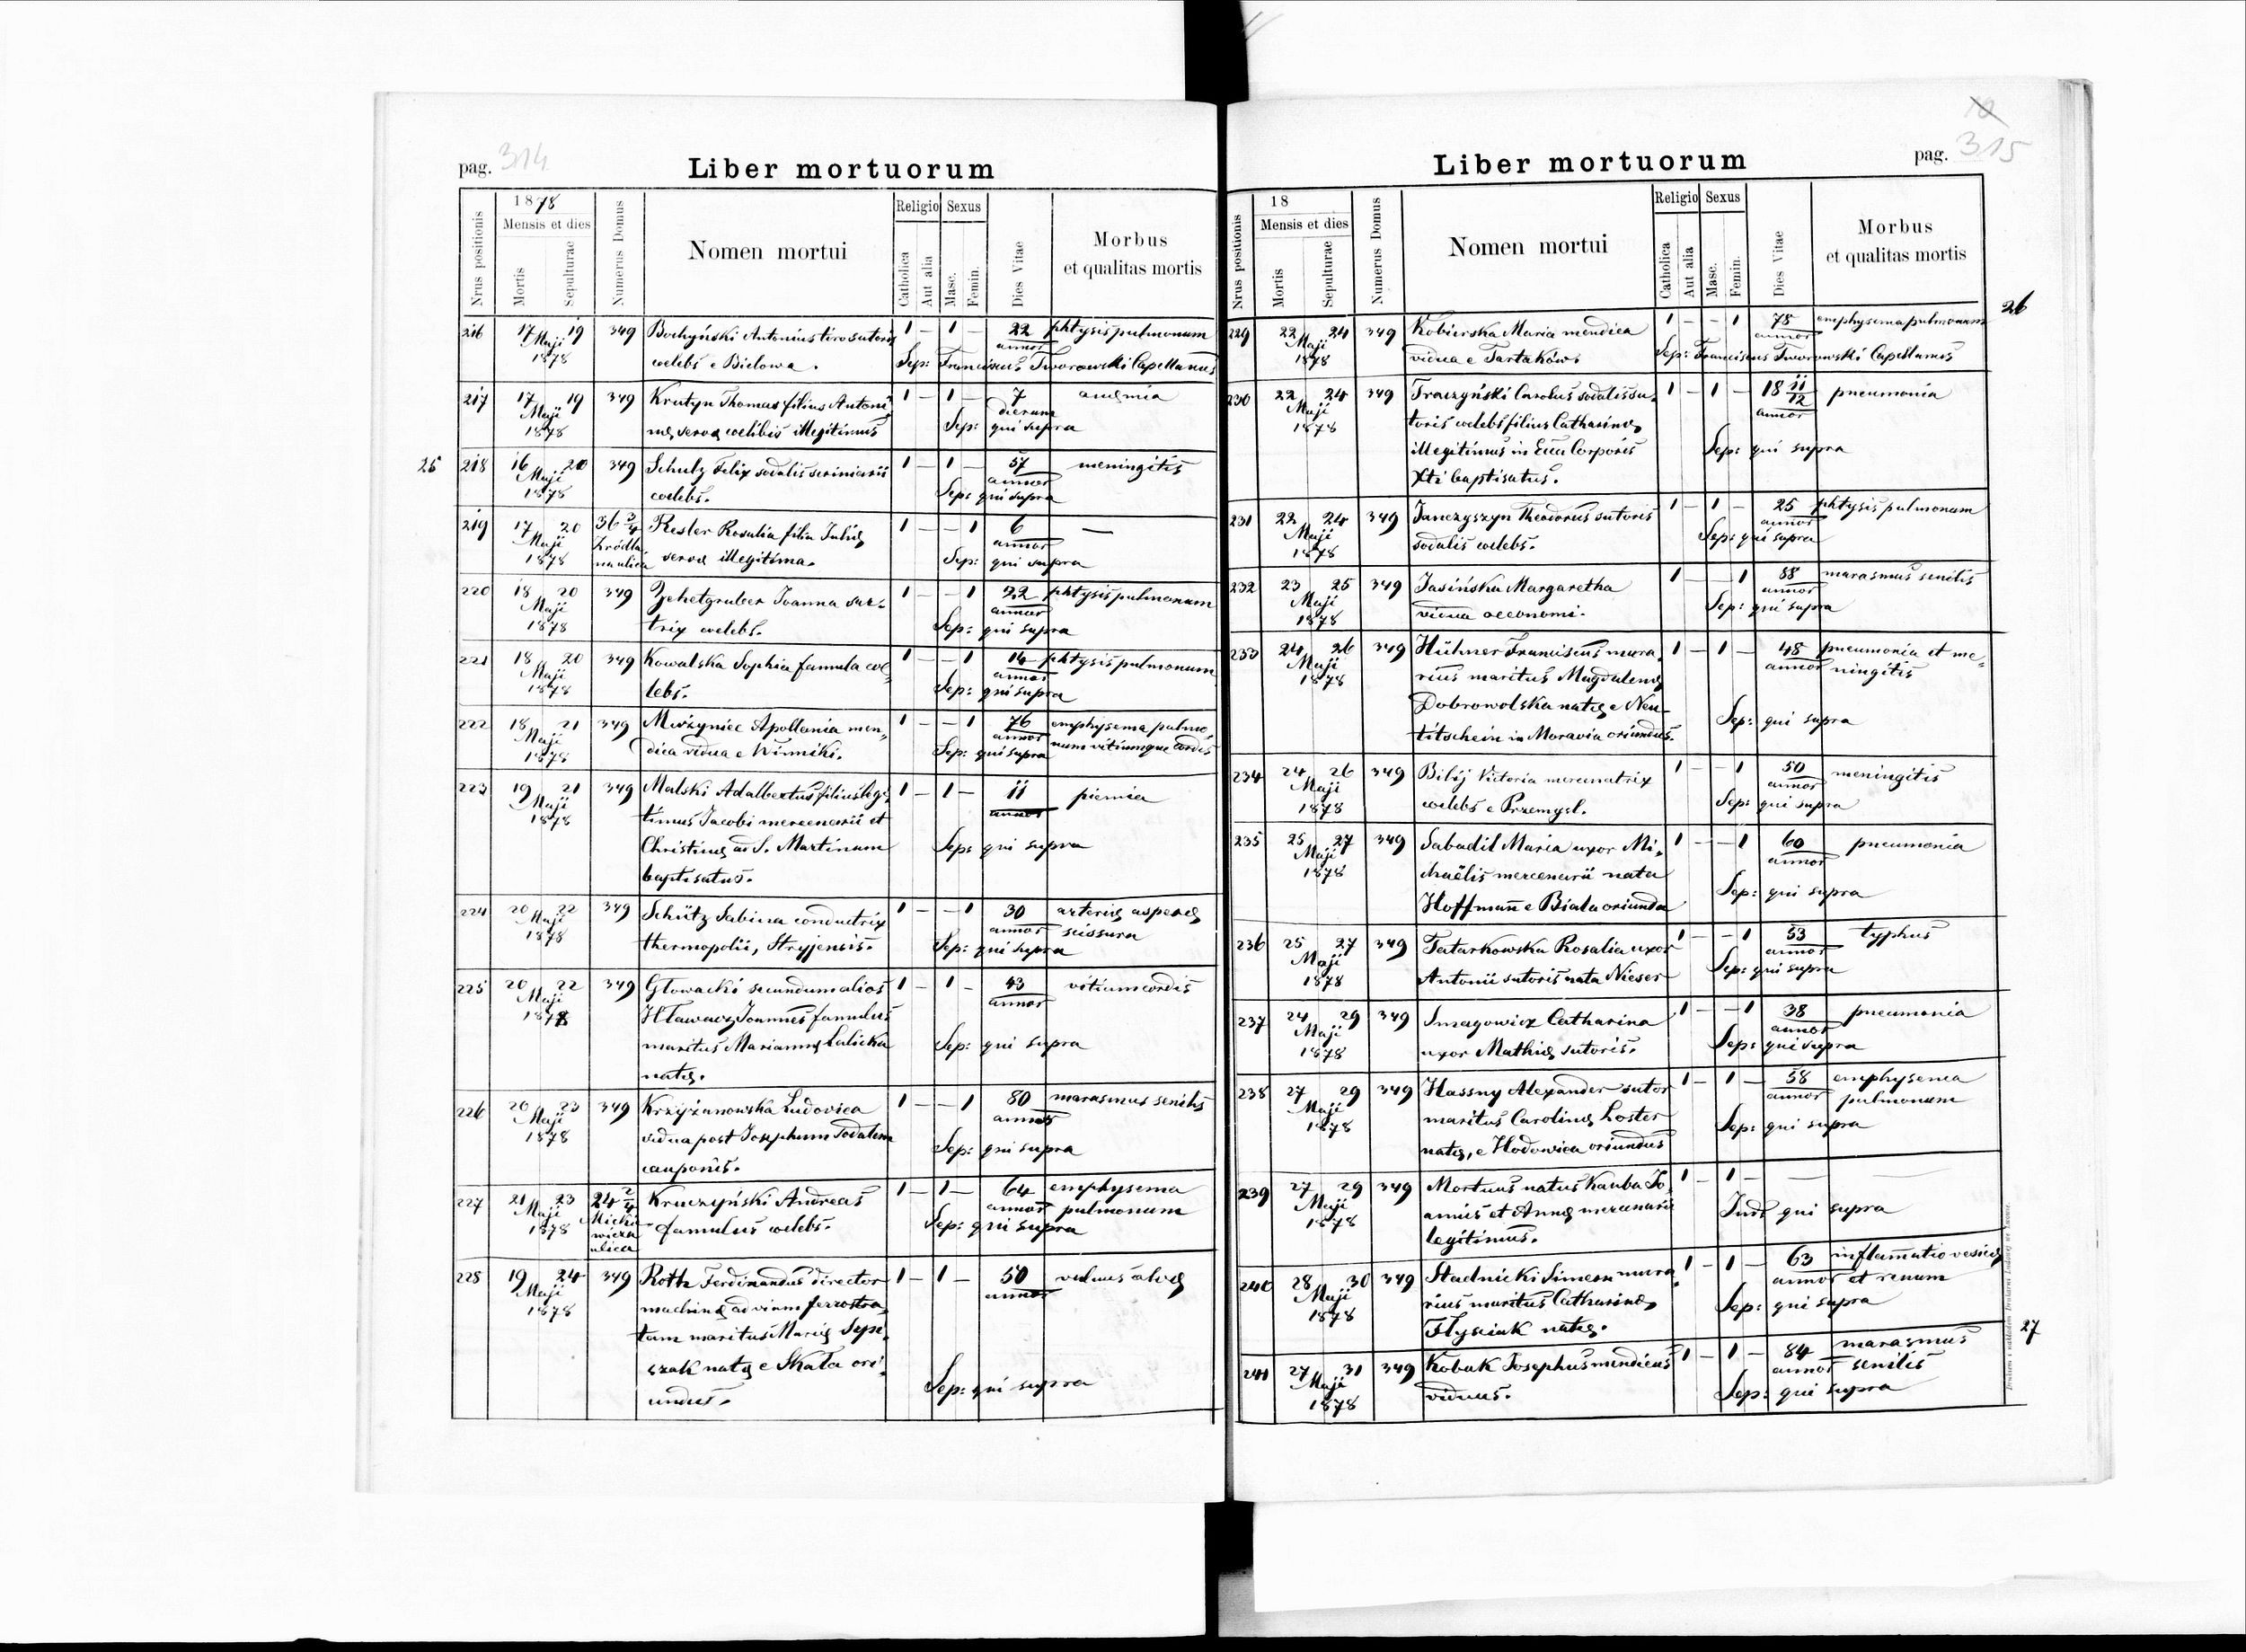 pag. 314
Liber mortuorum
Nrus positionis
1878
Mensis et dies
Mortis
Sepulturae
Numerus Domus
Nomen mortui
Religio
Catholica
Aut alia
Sexus
Masc.
Femin.
Dies Vitae
Morbus
et qualitas mortis
216 17 Maji 19 349 Bochyński Antonius tiro sutoris 1 – 1 – 22 phtysis pulmonum
1878 coelebs e Bielowa. annor
Sep: Franciscus Tworowski Capellanus
217 17 Maji 19 349 Krutyn Thomas filius Antoni 1 – 1 – 7 anęmia
1878 nę servę coelibis illegitimus dierum
Sep: qui supra
25 218 16 Maji 20 349 Schulz Felix sodalis scriniarii 1 – 1 – 57 meningitis
1878 coelebs. annor
Sep: qui supra
219 17 Maji 20 36 3/4 Resler Rosalia filia Julię 1 – – 1 6 —
1878 Źródla na ulica servę illegitima. annor
Sep: qui supra
220 18 Maji 20 349 Zehetgruber Joanna sar- 1 – – 1 22 phtysis pulmonum
1878 trix coelebs. annor
Sep: qui supra
221 18 Maji 20 349 Kowalska Sophia famula coe 1 – – 1 14 phtysis pulmonum
1878 lebs. annor
Sep: qui supra
222 18 Maji 21 349 Murzyniec Apollonia men 1 – – 1 76 emphysema pulmo
1878 dica vidua e Winniki. annor num vitiumque cordis
Sep: qui supra
223 19 Maji 21 349 Malski Adalbertus filius legi 1 – 1 – 11 piemia
1878 timus Jacobi mercenarii et annor
Christinę ad S. Martinum
Sep: qui supra
baptisatus.
224 20 Maji 22 349 Schütz Sabina conductrix 1 – – 1 30 arterię asperę
1878 thermopolii, Stryjensis. annor scissura
Sep: qui supra
225 20 Maji 22 349 Głowacki secundum alios 1 – 1 – 43 vitium cordis
1878 Hławacz Joannes famulus annor
maritus Mariannę Lalicka
Sep: qui supra
natę.
226 20 Maji 23 349 Krzyżanowska Ludovica 1 – – 1 80 marasmus senilis
1878 vidua post Josephum sodalem annor
cauponis.
Sep: qui supra
227 21 Maji 23 24 2/4 Kruczyński Andreas 1 – 1 – 64 emphysema
1878 Micki wicza ulica famulus coelebs. annor pulmonum
Sep: qui supra
228 19 Maji 24 349 Roth Ferdinandus director 1 – 1 – 50 vulnus alvę
1878 machinę ad viam ferrostra annor
tam maritus Marię Sepi
szak natę e Skała ori
undus.
Sep: qui supra
pag. 315
Liber mortuorum
Nrus positionis
18
Mensis et dies
Mortis
Sepulturae
Numerus Domus
Nomen mortui
Religio
Catholica
Aut alia
Sexus
Masc.
Femin.
Dies Vitae
Morbus
et qualitas mortis
26
229 22 Maji 24 349 Kobierska Maria mendica 1 – – 1 78 emphysema pulmonum
1878 vidua e Tartaków. annor
Sep: Franciscus Tworowski Capellanus
230 22 Maji 24 349 Traczyński Carolus sodalis su 1 – 1 – 18 11/12 pneumonia
1878 toris coelebs filius Catharinę annor
illegitimus in Ecca Corporis
Sep: qui supra
Xti baptisatus.
231 22 Maji 24 349 Janczyszyn Theodorus sutoris 1 – 1 – 25 phtysis pulmonum
1878 sodalis coelebs. annor
Sep: qui supra
232 23 Maji 25 349 Jasińska Margaretha 1 – – 1 88 marasmus senilis
1878 vidua oeconomi. annor
Sep: qui supra
233 24 Maji 26 349 Hühner Franciscus mura 1 – 1 – 48 pneumonia et me
1878 rius maritus Magdalenę annor ningitis
Dobrowolska natę e Neu-
Sep: qui supra
titschein in Moravia oriundus.
234 24 Maji 26 349 Bilij Victoria mercenatrix 1 – – 1 50 meningitis
1878 coelebs e Przemysl. annor
Sep: qui supra
235 25 Maji 27 349 Sabadil Maria uxor Mi 1 – – 1 60 pneumonia
1878 chaëlis mercenarii nata annor
Hoffmann e Biała oriunda
Sep: qui supra
236 25 Maji 27 349 Tatarkowska Rosalia uxor 1 – – 1 53 typhus
1878 Antonii sutoris nata Nieser annor
Sep: qui supra
237 24 Maji 29 349 Smagowicz Catharina 1 – – 1 38 pneumonia
1878 uxor Mathię sutoris. annor
Sep: qui supra
238 27 Maji 29 349 Hassny Alexander sutor 1 – 1 – 58 emphysema
1878 maritus Carolinę Loster annor pulmonum
natę, e Hodowica oriundus
Sep: qui supra
239 27 Maji 29 349 Mortuus natus Kauba Jo 1 – 1 –
1878 annis et Annę mercenarii
legitimus.
Ind: qui supra
240 28 Maji 30 349 Stadnicki Simeon mura 1 – 1 – 63 inflamatio vesicę
1878 rius maritus Catharinę annor et renum
Flysiak natę.
Sep: qui supra
27
241 27 Maji 31 349 Kobak Josephus mendicus 1 – 1 – 84 marasmus
1878 viduus. annor senilis
Sep: qui supra